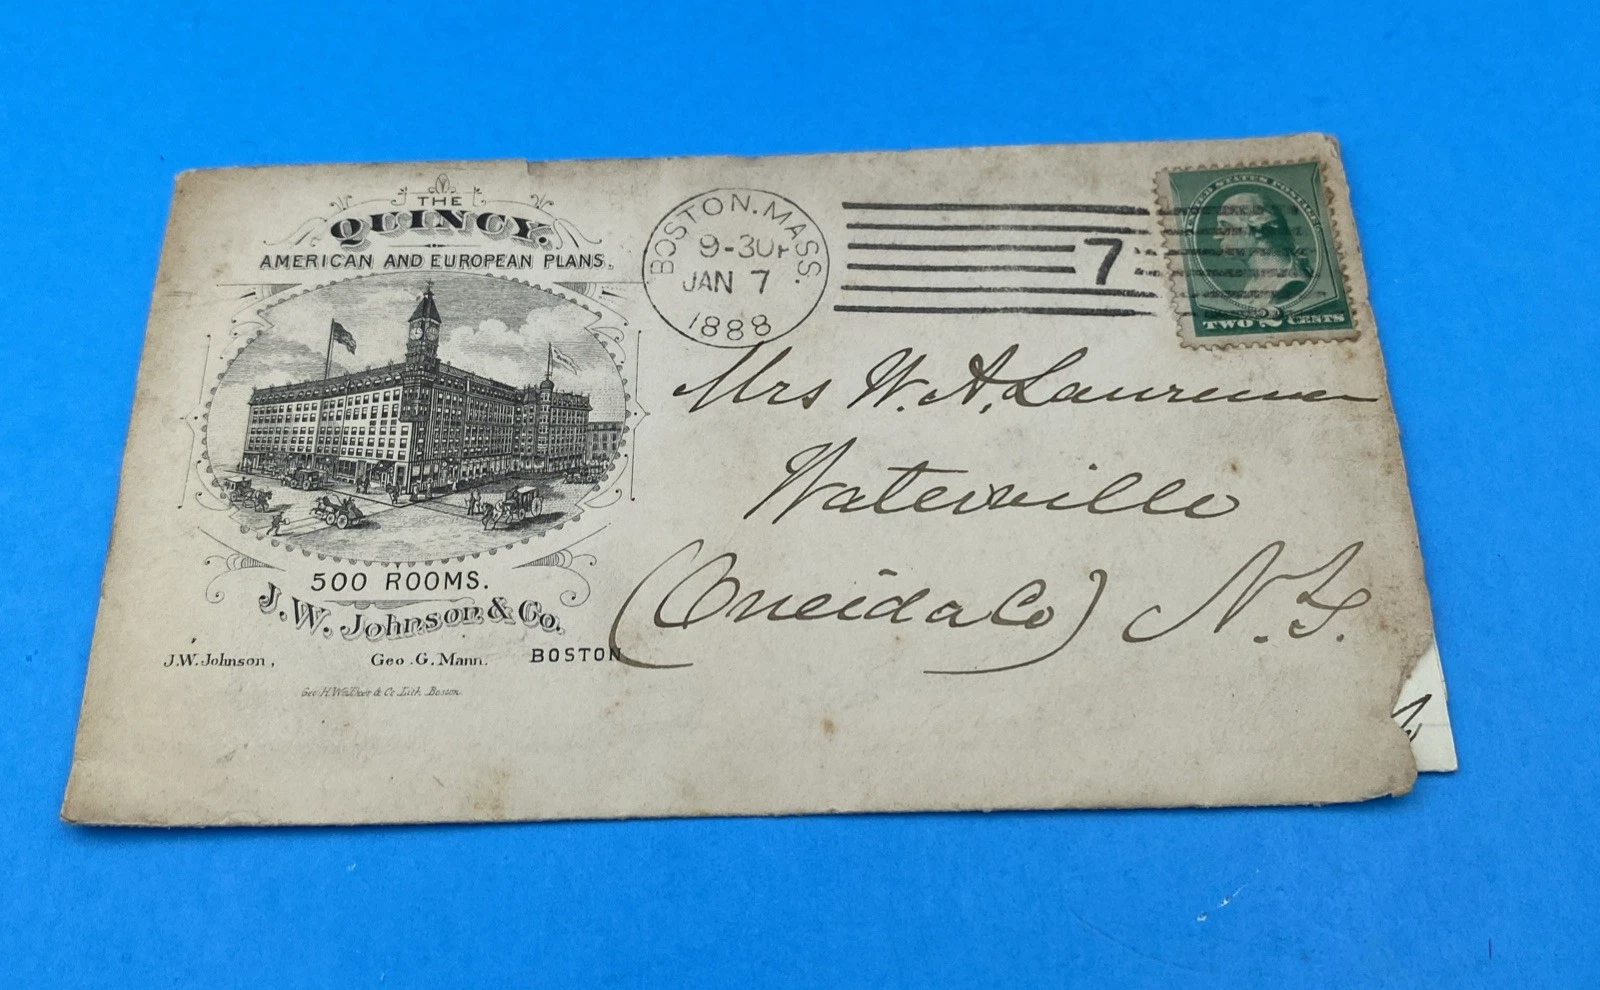 THE
QUINCY.
AMERICAN AND EUROPEAN PLANS.
500 ROOMS.
J.W. Johnson & Co.
J.W. Johnson, Geo. G. Mann. BOSTON
Lith. Boston.
BOSTON. MASS.
9-30P
JAN 7
1888
7
UNITED STATES POSTAGE
TWO 2 CENTS
Mrs W. A. Laurence
Waterville
(Oneida Co) N.Y.